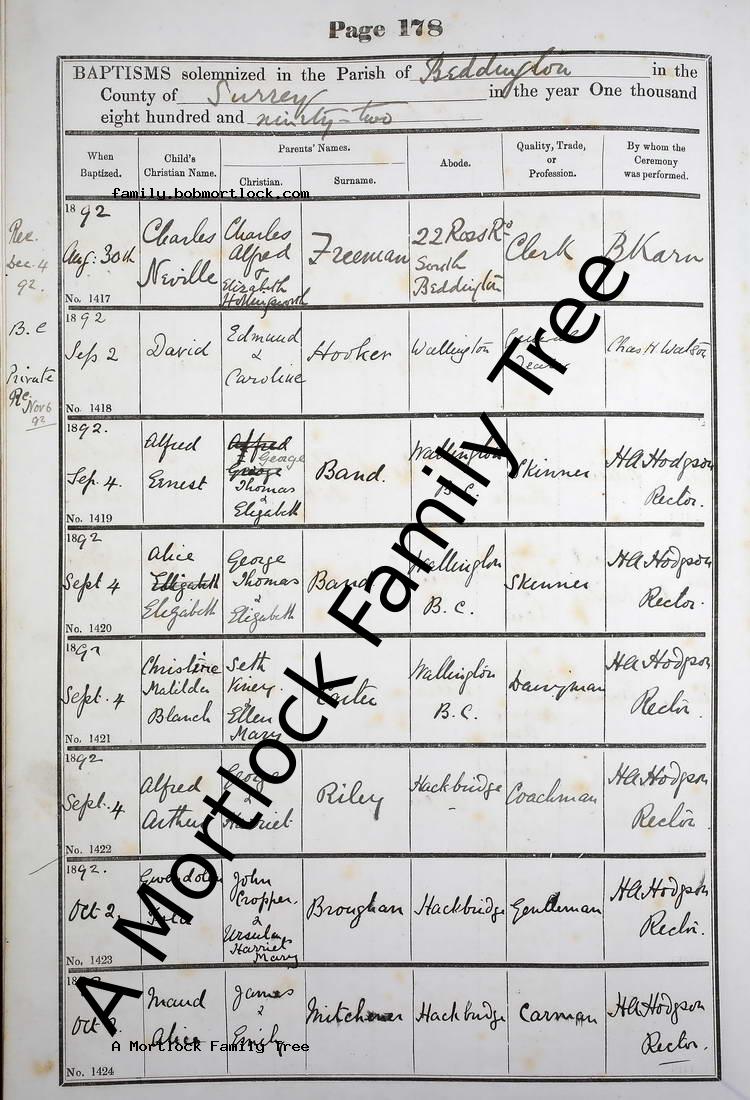 Page 178
BAPTISMS solemnized in the Parish of Beddington in the
County of Surrey in the year One thousand
eight hundred and ninety-two
When Baptized.
Child's Christian Name.
Parents' Names.
Christian.
Surname.
Abode.
Quality, Trade, or Profession.
By whom the Ceremony was performed.
family.bobmortlock.com
Rec.
Dec. 4
92.
1892
Aug: 30th
No. 1417
Charles
Neville
Charles
Alfred
&
Elizabeth
Hollingsworth
Freeman
22 Ross Rd
South
Beddington
Clerk
B Karn
B.C
Private
Rc.
Nov 6
92
1892
Sep 2
No. 1418
David
Edmund
&
Caroline
Hooker
Wallington
Chas H Watson
1892.
Sep. 4.
No. 1419
Alfred
Ernest
Alfred
George
George
Thomas
&
Elizabeth
Band.
Wallington
B.C.
Skinner
HA Hodgson
Rector.
1892
Sept 4
No. 1420
Alice
Elizabeth
Elizabeth
George
Thomas
&
Elizabeth
Band
Wallington
B.C.
Skinner
HA Hodgson
Rector.
1892
Sept. 4
No. 1421
Christine
Matilda
Blanch
Seth
Viney
&
Ellen
Mary
Carter
Wallington
B.C.
Dairyman
HA Hodgson
Rector.
1892
Sept. 4
No. 1422
Alfred
Arthur
George
&
Harriet
Riley
Hackbridge
Coachman
HA Hodgson
Rector.
1892.
Oct 2.
No. 1423
Gwendolen
John
Cropper.
&
Ursula
Harriet
Mary
Brougham
Hackbridge
Gentleman
HA Hodgson
Rector.
Oct 2.
No. 1424
Maud
Alice
James
&
Emily
Mitchener
Hackbridge
Carman
HA Hodgson
Rector.
A Mortlock Family Tree
A Mortlock Family Tree